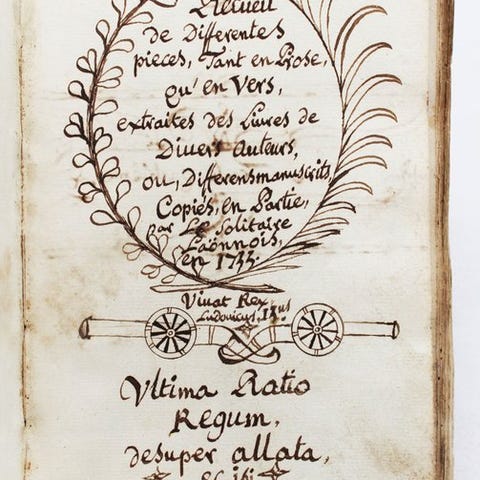 Recueil
de Differentes
pieces, Tant en Prose,
qu'en Vers,
extraites des Livres de
Divers Auteurs,
ou, Differens manuscrits,
Copiés, en Partie,
par Le Solitaire
Laonnois,
en 1733.
Vivat Rex
Ludovicus.
Ultima Ratio
Regum,
desuper allata,